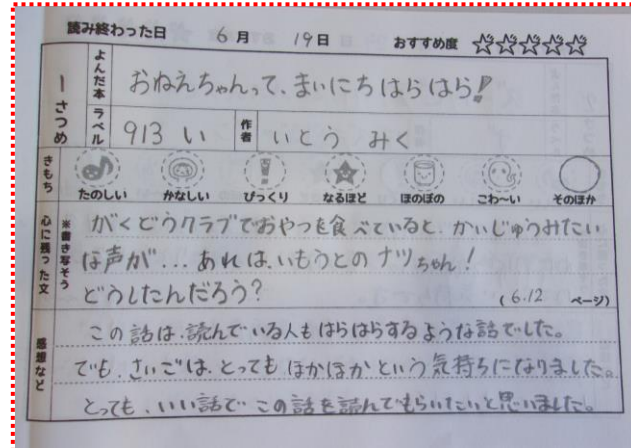 読み終わった日 6月 19日 おすすめ度
1さつめ
よんだ本 おねえちゃんって、まいにちはらはら!
ラベル 913 い 作者 いとう みく
きもち たのしい かなしい びっくり なるほど ほのぼの こわ〜い そのほか
心に残った文 ※書き写そう
がくどうクラブでおやつを食べていると、かいじゅうみたい
な声が...あれは、いもうとのナツちゃん!
どうしたんだろう?
(6.12 ページ)
感想など
この話は、読んでいる人もはらはらするような話でした。
でも、さいごは、とってもほかほかという気持ちになりました。
とっても、いい話で この話を読んでもらいたいと思いました。